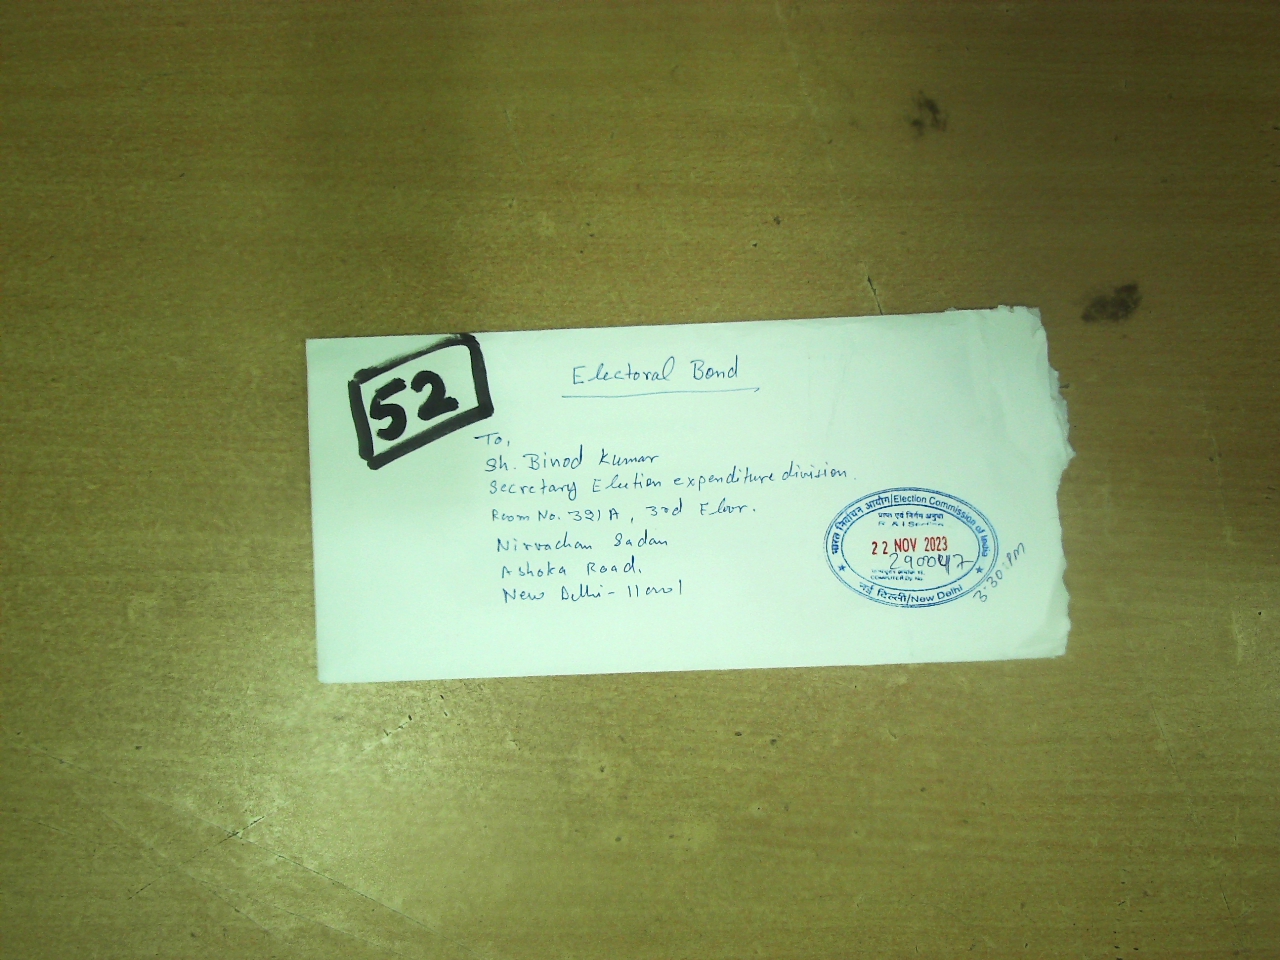 52
Electoral Bond
To,
Sh. Binod Kumar
Secretary Election expenditure division.
Room No. 391A, 3rd Floor.
Nirvachan Sadan
Ashoka Road.
New Delhi - 110001
भारत निर्वाचन आयोग/Election Commission of India
प्राप्त एवं निर्गम अनुभाग
R & I Section
22 NOV 2023
290047
नई दिल्ली/New Delhi
3:30 PM